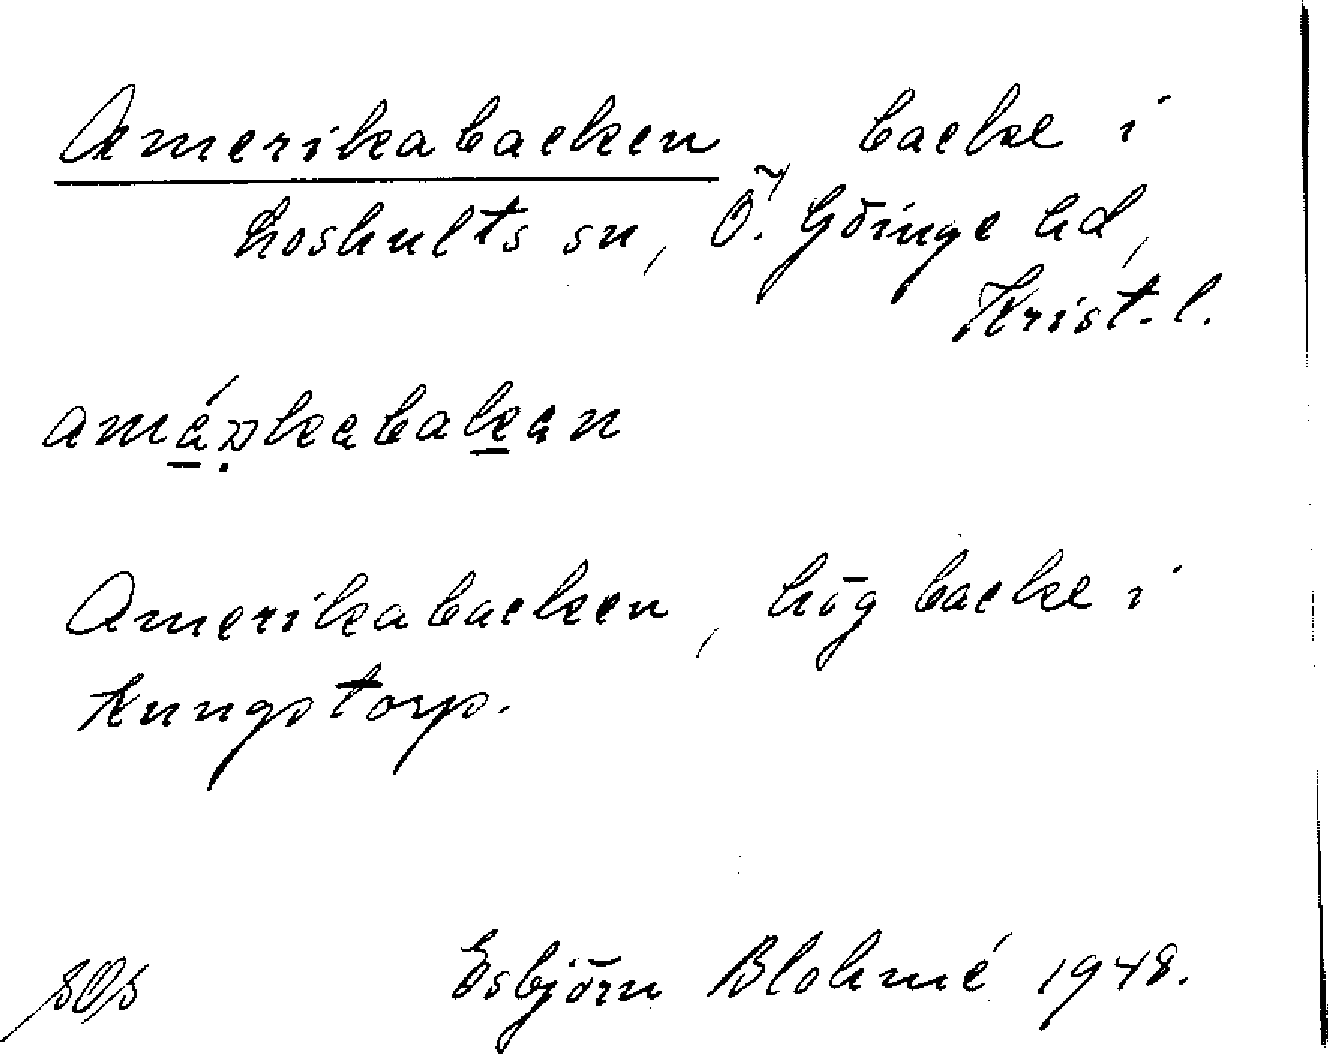 Amerikabacken, backe i
Loshults sn, Ö. Göinge hd,
Krist. l.
Amerikabacken, hög backe i
Kungstorp.
Esbjörn Blohmé 1948.